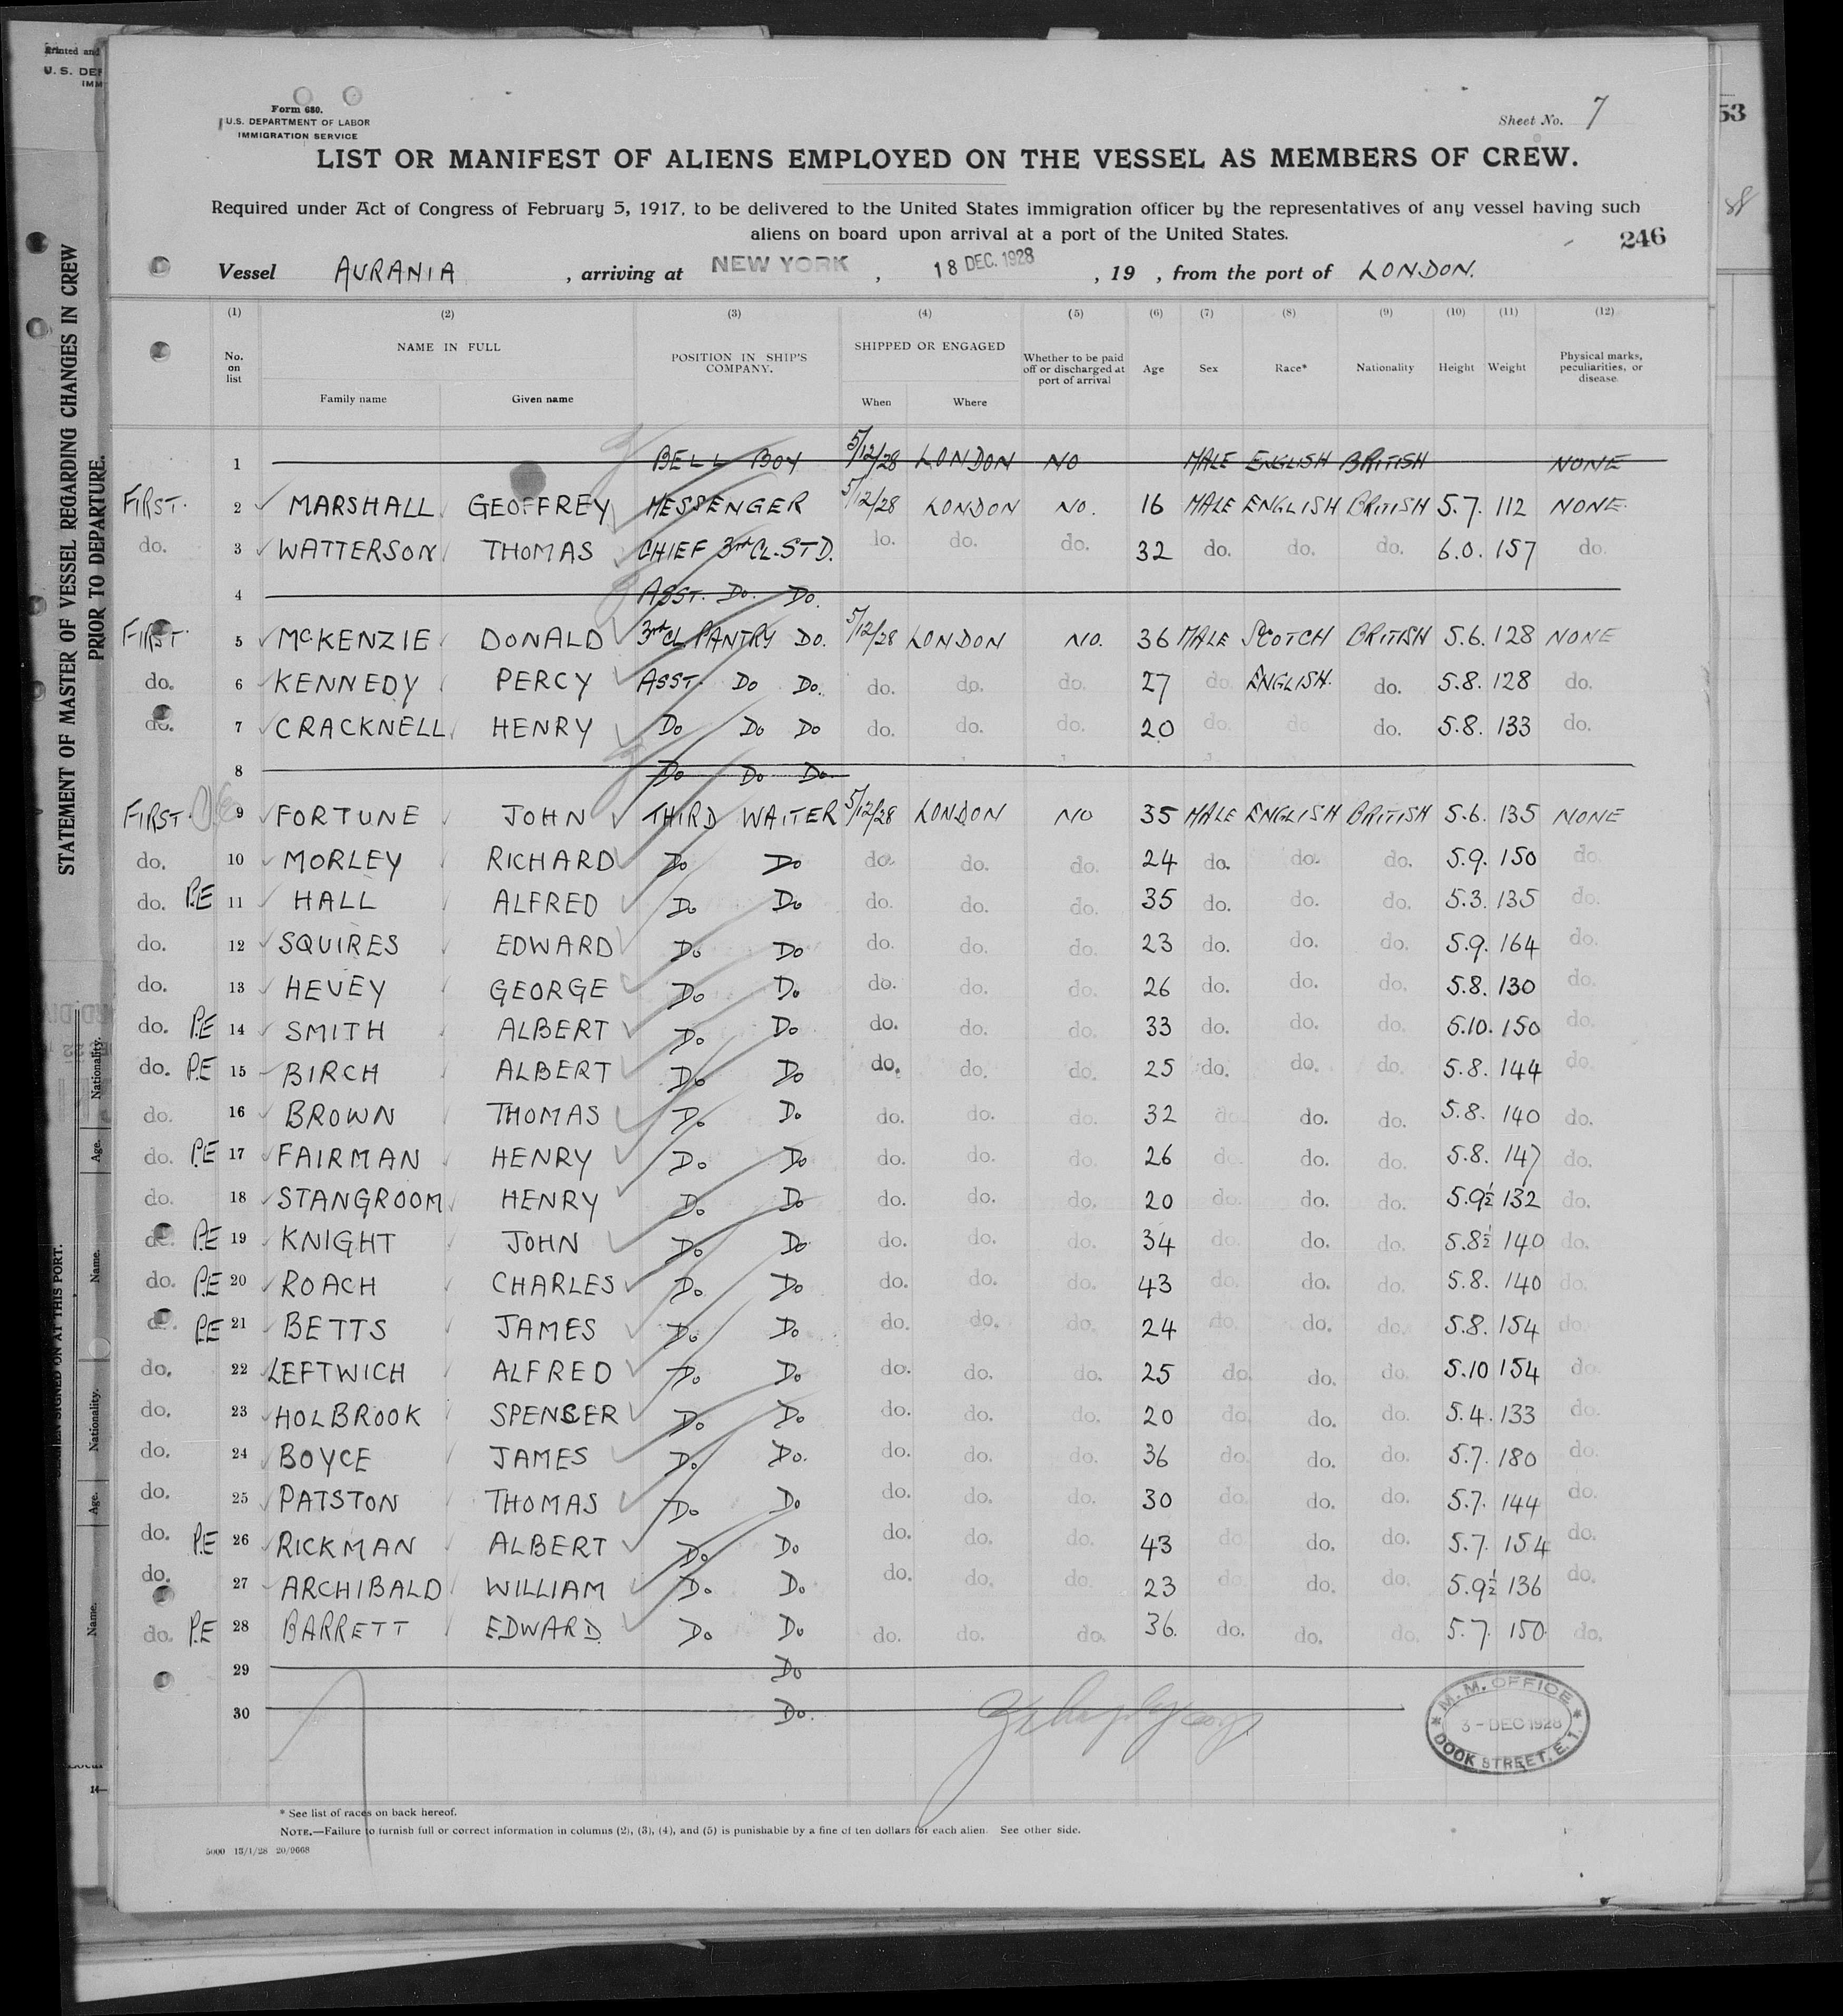 Printed and
U. S. DEP
IMM
STATEMENT OF MASTER OF VESSEL REGARDING CHANGES IN CREW
PRIOR TO DEPARTURE.
Nationality.
Age.
Name.
SIGNED ON AT THIS PORT.
Nationality.
Age.
Name.
14—
53
Form 680.
U.S. DEPARTMENT OF LABOR
IMMIGRATION SERVICE
Sheet No. 7
LIST OR MANIFEST OF ALIENS EMPLOYED ON THE VESSEL AS MEMBERS OF CREW.
Required under Act of Congress of February 5, 1917, to be delivered to the United States immigration officer by the representatives of any vessel having such
aliens on board upon arrival at a port of the United States.
246
Vessel AURANIA , arriving at NEW YORK , 18 DEC. 1928 , 19 , from the port of LONDON.
(1) (2) (3) (4) (5) (6) (7) (8) (9) (10) (11) (12)
No. on list NAME IN FULL Family name Given name POSITION IN SHIP'S COMPANY. SHIPPED OR ENGAGED When Where Whether to be paid off or discharged at port of arrival Age Sex Race* Nationality Height Weight Physical marks, peculiarities, or disease.
1 BELL BOY 5/12/28 LONDON NO MALE ENGLISH BRITISH NONE
FIRST. 2 MARSHALL GEOFFREY MESSENGER 5/12/28 LONDON NO. 16 MALE ENGLISH BRITISH 5.7. 112 NONE.
do. 3 WATTERSON THOMAS CHIEF 3rd CL. STD. do. do. do. 32 do. do. do. 6.0. 157 do.
4 ASST. Do. Do.
FIRST. 5 McKENZIE DONALD 3rd CL. PANTRY DO. 5/12/28 LONDON NO. 36 MALE SCOTCH BRITISH 5.6. 128 NONE
do. 6 KENNEDY PERCY ASST. Do Do. do. do. do. 27 do. ENGLISH. do. 5.8. 128 do.
do. 7 CRACKNELL HENRY Do Do Do do. do. do. 20 do. do. do. 5.8. 133 do.
8 Do Do Do
FIRST. 9 FORTUNE JOHN THIRD WAITER 5/12/28 LONDON NO 35 MALE ENGLISH BRITISH 5.6. 135 NONE
do. 10 MORLEY RICHARD Do Do do. do. do. 24 do. do. do. 5.9. 150 do.
do. P.E 11 HALL ALFRED Do Do do. do. do. 35 do. do. do. 5.3. 135 do.
do. 12 SQUIRES EDWARD Do Do do. do. do. 23 do. do. do. 5.9. 164 do.
do. 13 HEVEY GEORGE Do Do do. do. do. 26 do. do. do. 5.8. 130 do.
do. P.E 14 SMITH ALBERT Do Do do. do. do. 33 do. do. do. 5.10. 150 do.
do. P.E 15 BIRCH ALBERT Do Do do. do. do. 25 do. do. do. 5.8. 144 do.
do. 16 BROWN THOMAS Do Do do. do. do. 32 do. do. do. 5.8. 140 do.
do. P.E 17 FAIRMAN HENRY Do Do do. do. do. 26 do. do. do. 5.8. 147 do.
do. 18 STANGROOM HENRY Do Do do. do. do. 20 do. do. do. 5.9½ 132 do.
do. P.E 19 KNIGHT JOHN Do Do do. do. do. 34 do. do. do. 5.8½ 140 do.
do. P.E 20 ROACH CHARLES Do Do do. do. do. 43 do. do. do. 5.8. 140 do.
do. P.E 21 BETTS JAMES Do Do do. do. do. 24 do. do. do. 5.8. 154 do.
do. 22 LEFTWICH ALFRED Do Do do. do. do. 25 do. do. do. 5.10 154 do.
do. 23 HOLBROOK SPENCER Do Do do. do. do. 20 do. do. do. 5.4. 133 do.
do. 24 BOYCE JAMES Do Do. do. do. do. 36 do. do. do. 5.7. 180 do.
do. 25 PATSTON THOMAS Do Do do. do. do. 30 do. do. do. 5.7. 144 do.
do. P.E 26 RICKMAN ALBERT Do Do do. do. do. 43 do. do. do. 5.7. 154 do.
do. 27 ARCHIBALD WILLIAM Do Do do. do. do. 23 do. do. do. 5.9½ 136 do.
do. P.E 28 BARRETT EDWARD. Do Do do. do. do. 36. do. do. do. 5.7. 150 do.
29 Do
30 Do.
M. M. OFFICE
3 - DEC 1928
DOCK STREET, E. 1.
* See list of races on back hereof.
NOTE.—Failure to furnish full or correct information in columns (2), (3), (4), and (5) is punishable by a fine of ten dollars for each alien. See other side.
5000 13/1/28 20/9668